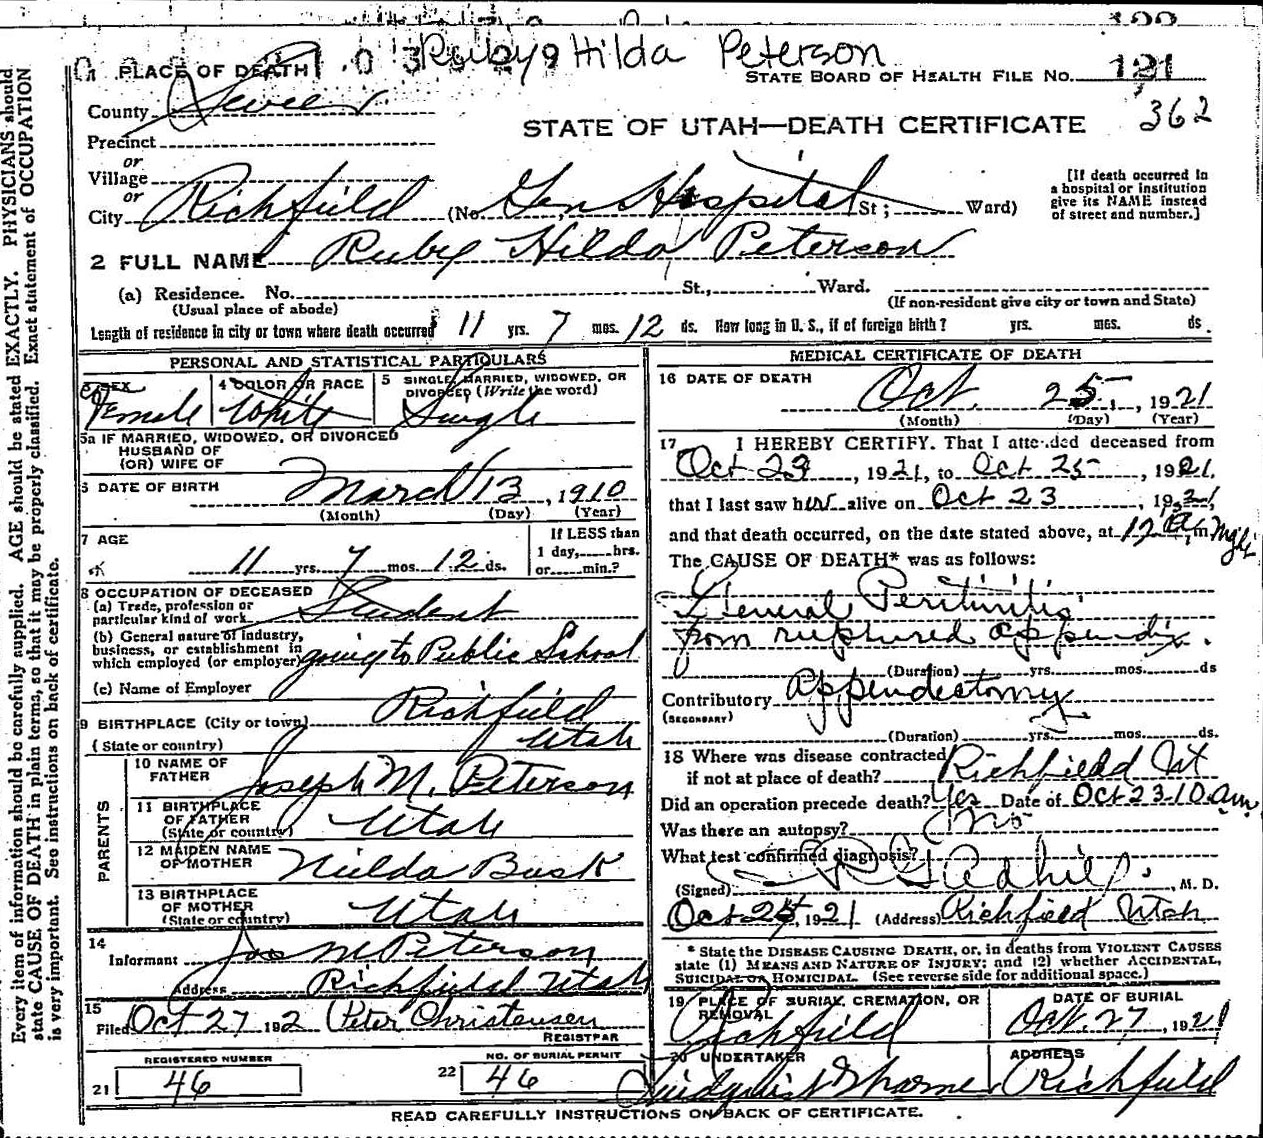 Ruby Hilda Peterson
1 PLACE OF DEATH
STATE BOARD OF HEALTH FILE No. 121
362
County Sevier
STATE OF UTAH—DEATH CERTIFICATE
Precinct
or
Village
or
City Richfield (No. Gen Hospital St; Ward)
[If death occurred in a hospital or institution give its NAME instead of street and number.]
2 FULL NAME Ruby Hilda Peterson
(a) Residence. No. St., Ward.
(Usual place of abode) (If non-resident give city or town and State)
Length of residence in city or town where death occurred 11 yrs. 7 mos. 12 ds. How long in U. S., if of foreign birth? yrs. mos. ds.
PERSONAL AND STATISTICAL PARTICULARS
3 SEX Female
4 COLOR OR RACE White
5 SINGLE, MARRIED, WIDOWED, OR DIVORCED (Write the word) Single
5a IF MARRIED, WIDOWED, OR DIVORCED
HUSBAND OF
(OR) WIFE OF
6 DATE OF BIRTH March 13, 1910
(Month) (Day) (Year)
7 AGE 11 yrs. 7 mos. 12 ds.
If LESS than
1 day, hrs.
or min.?
8 OCCUPATION OF DECEASED
(a) Trade, profession or particular kind of work Student
(b) General nature of industry, business, or establishment in which employed (or employer) going to Public School
(c) Name of Employer
9 BIRTHPLACE (City or town) Richfield
(State or country) Utah
PARENTS
10 NAME OF FATHER Joseph M. Peterson
11 BIRTHPLACE OF FATHER (State or country) Utah
12 MAIDEN NAME OF MOTHER Hilda Busk
13 BIRTHPLACE OF MOTHER (State or country) Utah
14
Informant Jos M Peterson
Address Richfield Utah
15
Filed Oct 27 192 Peter Christensen
REGISTRAR
REGISTERED NUMBER
21 46
NO. OF BURIAL PERMIT
22 46
MEDICAL CERTIFICATE OF DEATH
16 DATE OF DEATH Oct. 25, 1921
(Month) (Day) (Year)
17 I HEREBY CERTIFY, That I attended deceased from
Oct 23, 1921, to Oct 25, 1921,
that I last saw her alive on Oct 23, 1921,
and that death occurred, on the date stated above, at 12 m
The CAUSE OF DEATH* was as follows:
General Peritinitis,
from ruptured appendix.
(Duration) yrs. mos. ds
Contributory Appendectomy
(SECONDARY)
(Duration) yrs. mos. ds.
18 Where was disease contracted
if not at place of death? Richfield Ut
Did an operation precede death? Yes Date of Oct 23 10 am.
Was there an autopsy? No
What test confirmed diagnosis?
(Signed) , M. D.
Oct 25, 1921 (Address) Richfield Utah
* State the DISEASE CAUSING DEATH, or, in deaths from VIOLENT CAUSES
state (1) MEANS AND NATURE OF INJURY; and (2) whether ACCIDENTAL,
SUICIDAL OR HOMICIDAL. (See reverse side for additional space.)
19 PLACE OF BURIAL, CREMATION, OR REMOVAL Richfield
DATE OF BURIAL Oct. 27, 1921
20 UNDERTAKER
ADDRESS Richfield
READ CAREFULLY INSTRUCTIONS ON BACK OF CERTIFICATE.
Every item of information should be carefully supplied. AGE should be stated EXACTLY. PHYSICIANS should
state CAUSE OF DEATH in plain terms, so that it may be properly classified. Exact statement of OCCUPATION
is very important. See instructions on back of certificate.